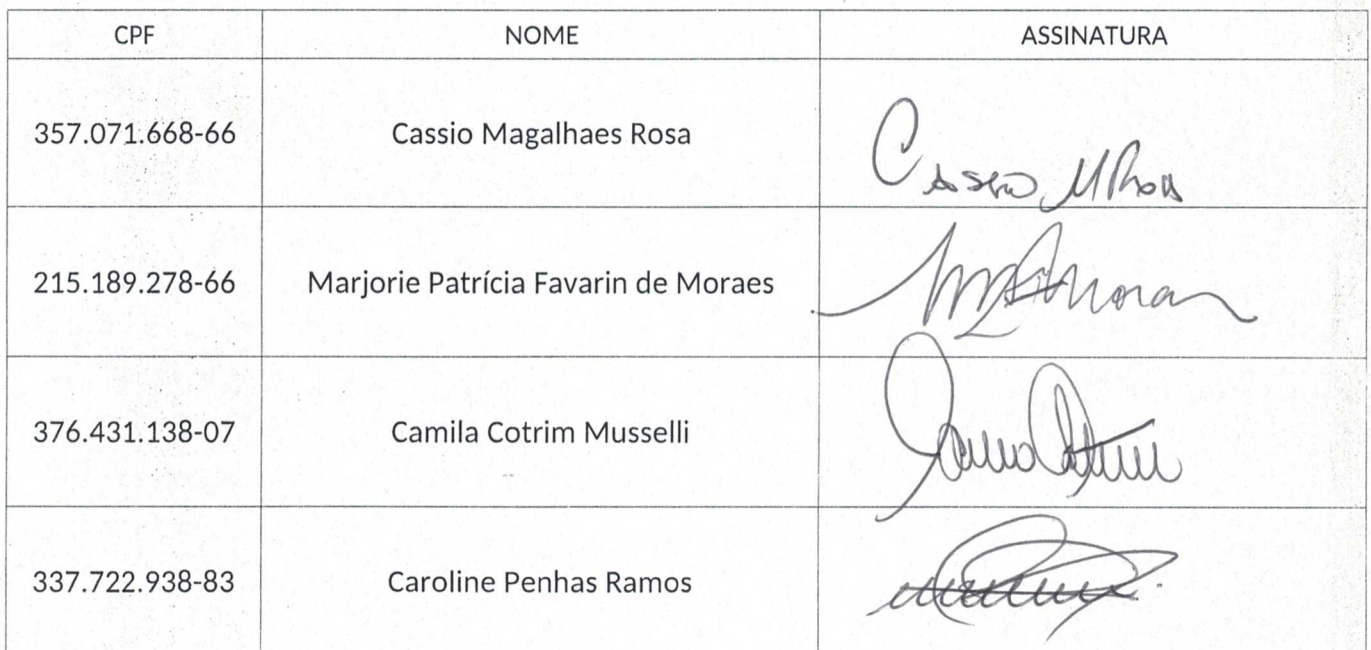 CPF NOME ASSINATURA
357.071.668-66 Cassio Magalhaes Rosa Cassio M Rosa
215.189.278-66 Marjorie Patrícia Favarin de Moraes
376.431.138-07 Camila Cotrim Musselli
337.722.938-83 Caroline Penhas Ramos